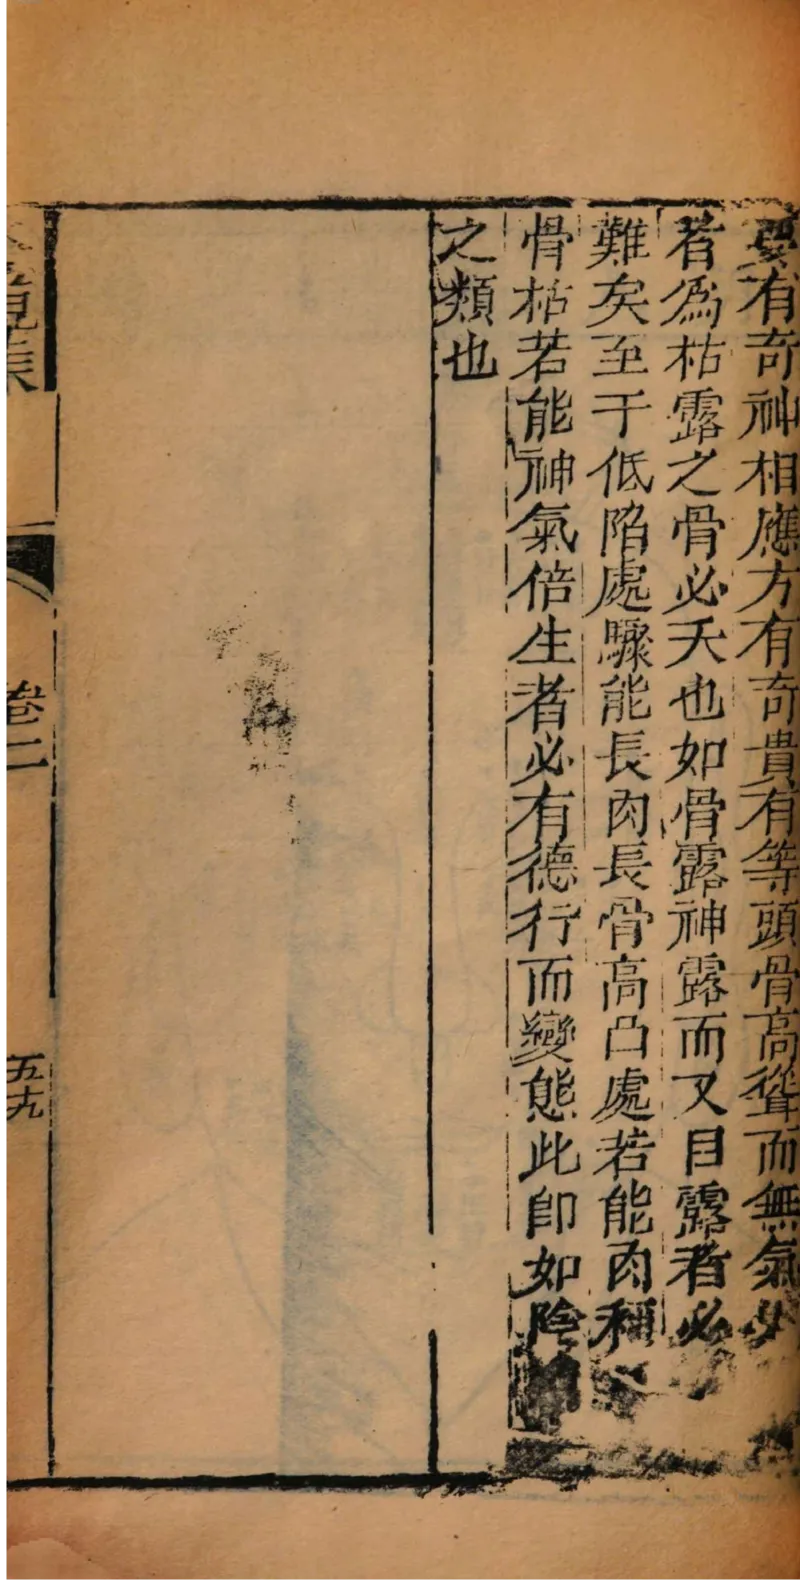 要有奇神相應方有奇貴有等頭骨高聳而無氣
者為枯露之骨必夭也如骨露神露而又目露者必
難矣至于低陷處驟能長肉長骨高凸處若能肉稱
骨枯若能神氣倍生者必有德行而變態此即如陰
之類也
卷二
五十九